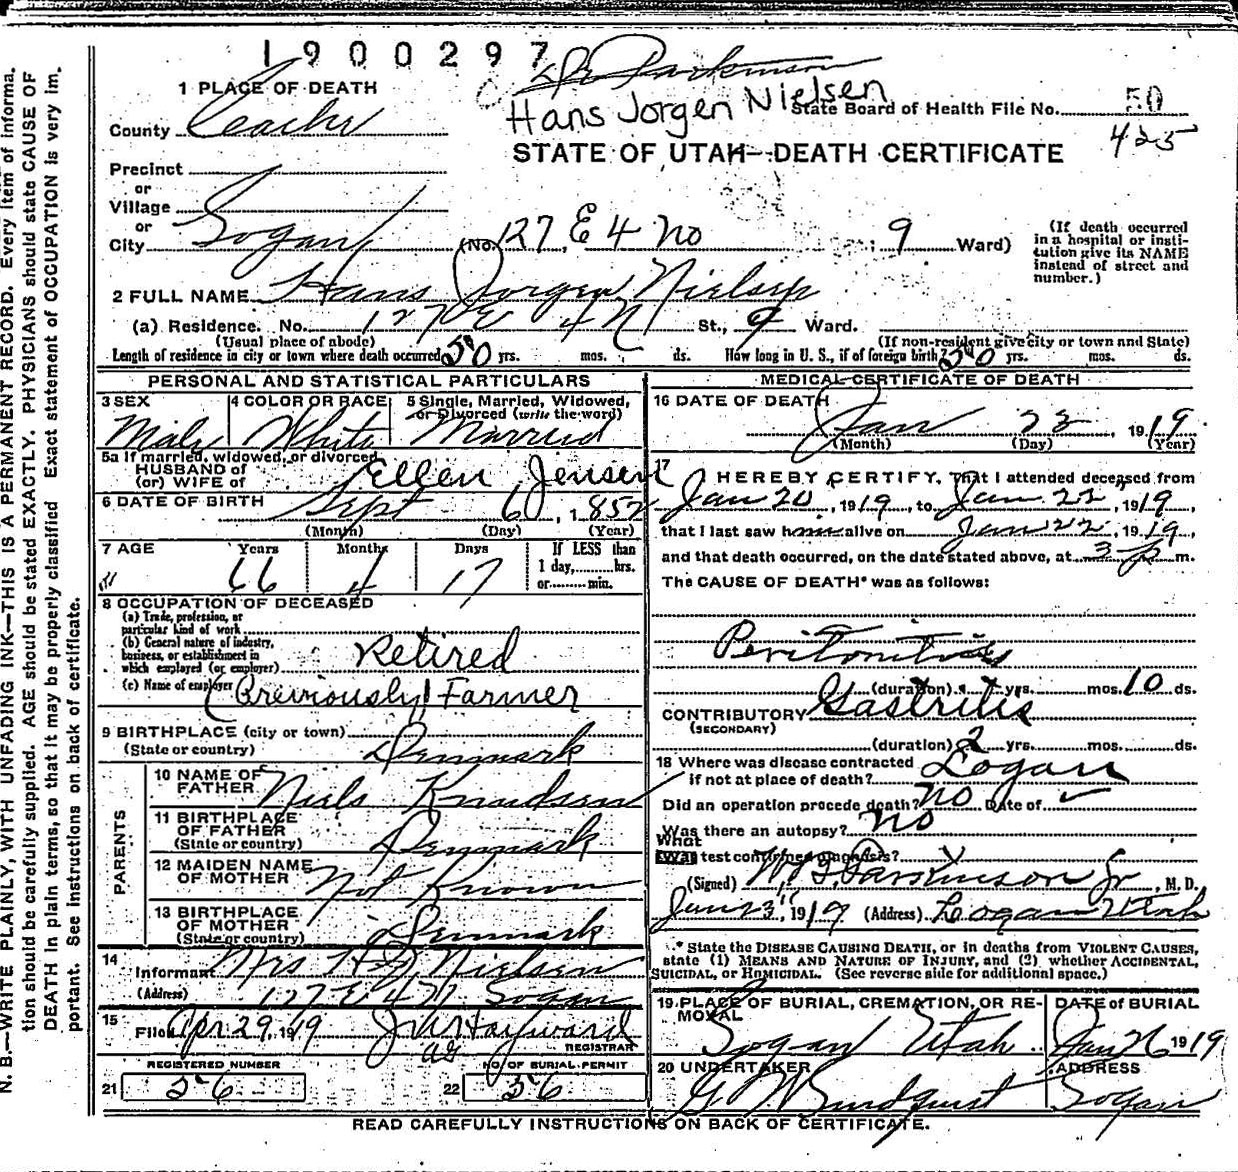 1900297
Dr Parkinson
1 PLACE OF DEATH
Hans Jorgen Nielsen
State Board of Health File No. 50
County Cache
425
STATE OF UTAH—DEATH CERTIFICATE
Precinct
or
Village
or
City Logan (No. 127 E 4 No 9 Ward)
(If death occurred in a hospital or insti-
tution give its NAME
instead of street and
number.)
2 FULL NAME Hans Jorgen Nielsen
(a) Residence. No. 127 E 4 N St., 9 Ward.
(Usual place of abode)
(If non-resident give city or town and State)
Length of residence in city or town where death occurred 50 yrs. mos. ds. How long in U. S., if of foreign birth? 50 yrs. mos. ds.
PERSONAL AND STATISTICAL PARTICULARS
3 SEX Male
4 COLOR OR RACE White
5 Single, Married, Widowed,
or Divorced (write the word)
Married
5a If married, widowed, or divorced
HUSBAND of
(or) WIFE of Ellen Jensen
6 DATE OF BIRTH Sept 6, 1852
(Month) (Day) (Year)
7 AGE Years Months Days If LESS than
1 day, hrs.
or min.
66 4 17
8 OCCUPATION OF DECEASED
(a) Trade, profession, or
particular kind of work
(b) General nature of industry,
business, or establishment in
which employed (or employer) Retired
(c) Name of employer (Previously) Farmer
9 BIRTHPLACE (city or town)
(State or country) Denmark
PARENTS
10 NAME OF
FATHER Niels Knudsen
11 BIRTHPLACE
OF FATHER
(State or country) Denmark
12 MAIDEN NAME
OF MOTHER Not Known
13 BIRTHPLACE
OF MOTHER
(State or country) Denmark
14
Informant Mrs H J Nielsen
(Address) 127 E 4 N Logan
15
Filed Apr 29, 1919
REGISTRAR
REGISTERED NUMBER
21 56
NO. OF BURIAL PERMIT
22 56
MEDICAL CERTIFICATE OF DEATH
16 DATE OF DEATH
Jan 23, 1919
(Month) (Day) (Year)
17
I HEREBY CERTIFY, That I attended deceased from
Jan 20, 1919, to Jan 22, 1919,
that I last saw him alive on Jan 22, 1919,
and that death occurred, on the date stated above, at 3 p m.
The CAUSE OF DEATH* was as follows:
Peritonitis
(duration) yrs. mos. 10 ds.
CONTRIBUTORY Gastritis
(SECONDARY)
(duration) 2 yrs. mos. ds.
18 Where was disease contracted
if not at place of death? Logan
Did an operation precede death? No Date of
Was there an autopsy? No
What
test confirmed diagnosis?
(Signed) W B Parkinson Jr, M. D.
Jan 23, 1919 (Address) Logan Utah
* State the DISEASE CAUSING DEATH, or in deaths from VIOLENT CAUSES,
state (1) MEANS AND NATURE OF INJURY, and (2) whether ACCIDENTAL,
SUICIDAL, or HOMICIDAL. (See reverse side for additional space.)
19 PLACE OF BURIAL, CREMATION, OR RE-
MOVAL
Logan Utah
DATE of BURIAL
Jan 26 1919
20 UNDERTAKER
ADDRESS
Logan
READ CAREFULLY INSTRUCTIONS ON BACK OF CERTIFICATE.
N. B.—WRITE PLAINLY, WITH UNFADING INK—THIS IS A PERMANENT RECORD. Every item of informa-
tion should be carefully supplied. AGE should be stated EXACTLY. PHYSICIANS should state CAUSE OF
DEATH in plain terms, so that it may be properly classified Exact statement of OCCUPATION is very im-
portant. See instructions on back of certificate.